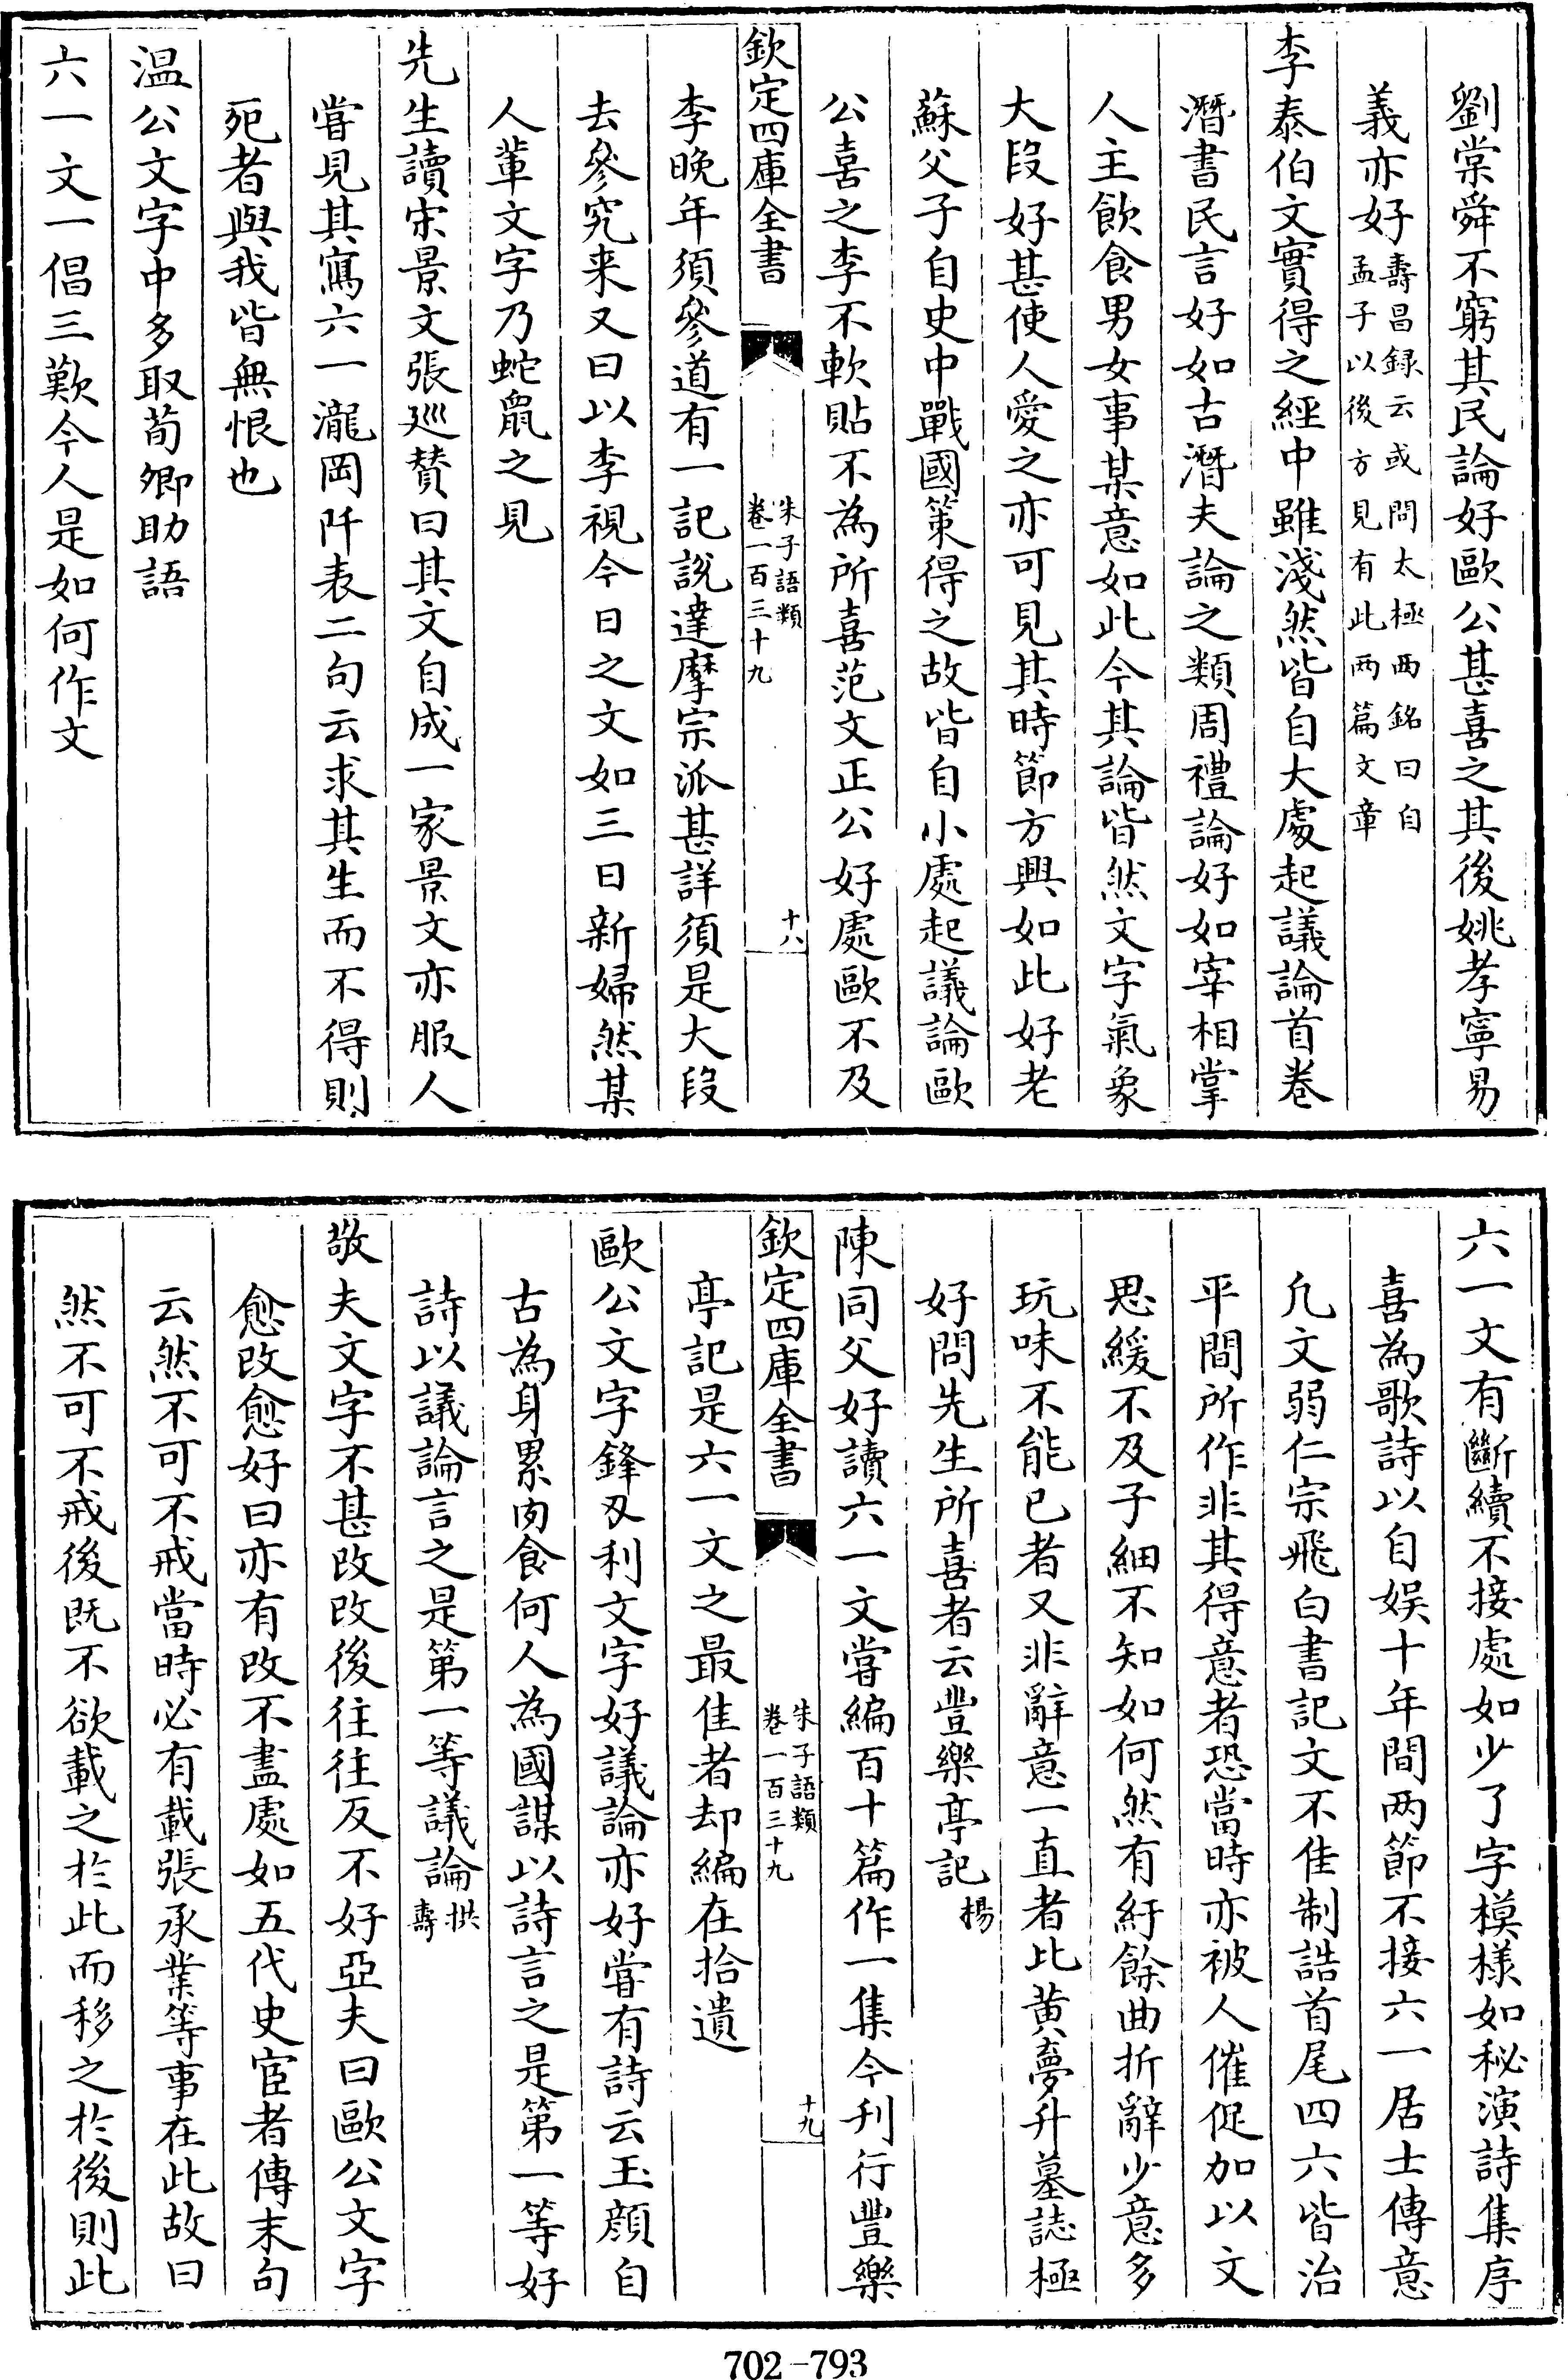 劉棠舜不窮其民論好歐公甚喜之其後姚孝寧易
義亦好壽昌録云或問太極西銘曰自
孟子以後方見有此兩篇文章
李泰伯文實得之經中雖淺然皆自大處起議論首卷
潛書民言好如古潛夫論之類周禮論好如宰相掌
人主飲食男女事某意如此今其論皆然文字氣象
大段好甚使人愛之亦可見其時節方興如此好老
蘇父子自史中戰國策得之故皆自小處起議論歐
公喜之李不軟貼不為所喜范文正公好處歐不及
欽定四庫全書
朱子語類
卷一百三十九
十八
李晚年須參道有一記說達摩宗派甚詳須是大段
去參究来又曰以李視今日之文如三日新婦然某
人輩文字乃蛇䑕之見
先生讀宋景文張廵賛曰其文自成一家景文亦服人
嘗見其寫六一瀧岡阡表二句云求其生而不得則
死者與我皆無恨也
温公文字中多取荀卿助語
六一文一倡三歎今人是如何作文
六一文有斷續不接處如少了字模樣如秘演詩集序
喜為歌詩以自娱十年間两節不接六一居士傳意
凡文弱仁宗飛白書記文不佳制誥首尾四六皆治
平間所作非其得意者恐當時亦被人催促加以文
思緩不及子細不知如何然有紆餘曲折辭少意多
玩味不能已者又非辭意一直者比黄夢升墓誌極
好問先生所喜者云豐樂亭記楊
陳同父好讀六一文嘗編百十篇作一集今刋行豐樂
欽定四庫全書
朱子語類
卷一百三十九
十九
亭記是六一文之最佳者却編在拾遺
歐公文字鋒刃利文字好議論亦好嘗有詩云玉顔自
古為身累肉食何人為國謀以詩言之是第一等好
詩以議論言之是第一等議論拱
壽
敬夫文字不甚改改後往往反不好亞夫曰歐公文字
愈改愈好曰亦有改不盡處如五代史宦者傳末句
云然不可不戒當時必有載張承業等事在此故曰
然不可不戒後既不欲載之於此而移之於後則此
702-793